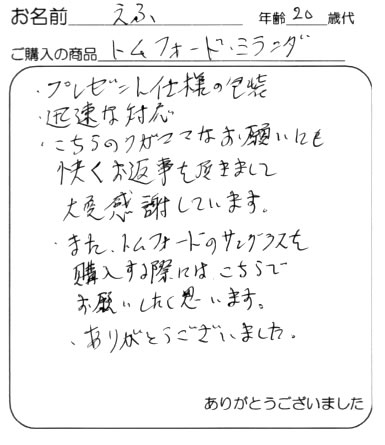 お名前 えふ 年齢 20 歳代
ご購入の商品 トムフォード・ミランダ
・プレゼント仕様の包装
・迅速な対応
・こちらのワガママなお願いにも
快くお返事を頂きまして
大変感謝しています。
・また、トムフォードのサングラスを
購入する際には、こちらで
お願いしたく思います。
・ありがとうございました。
ありがとうございました